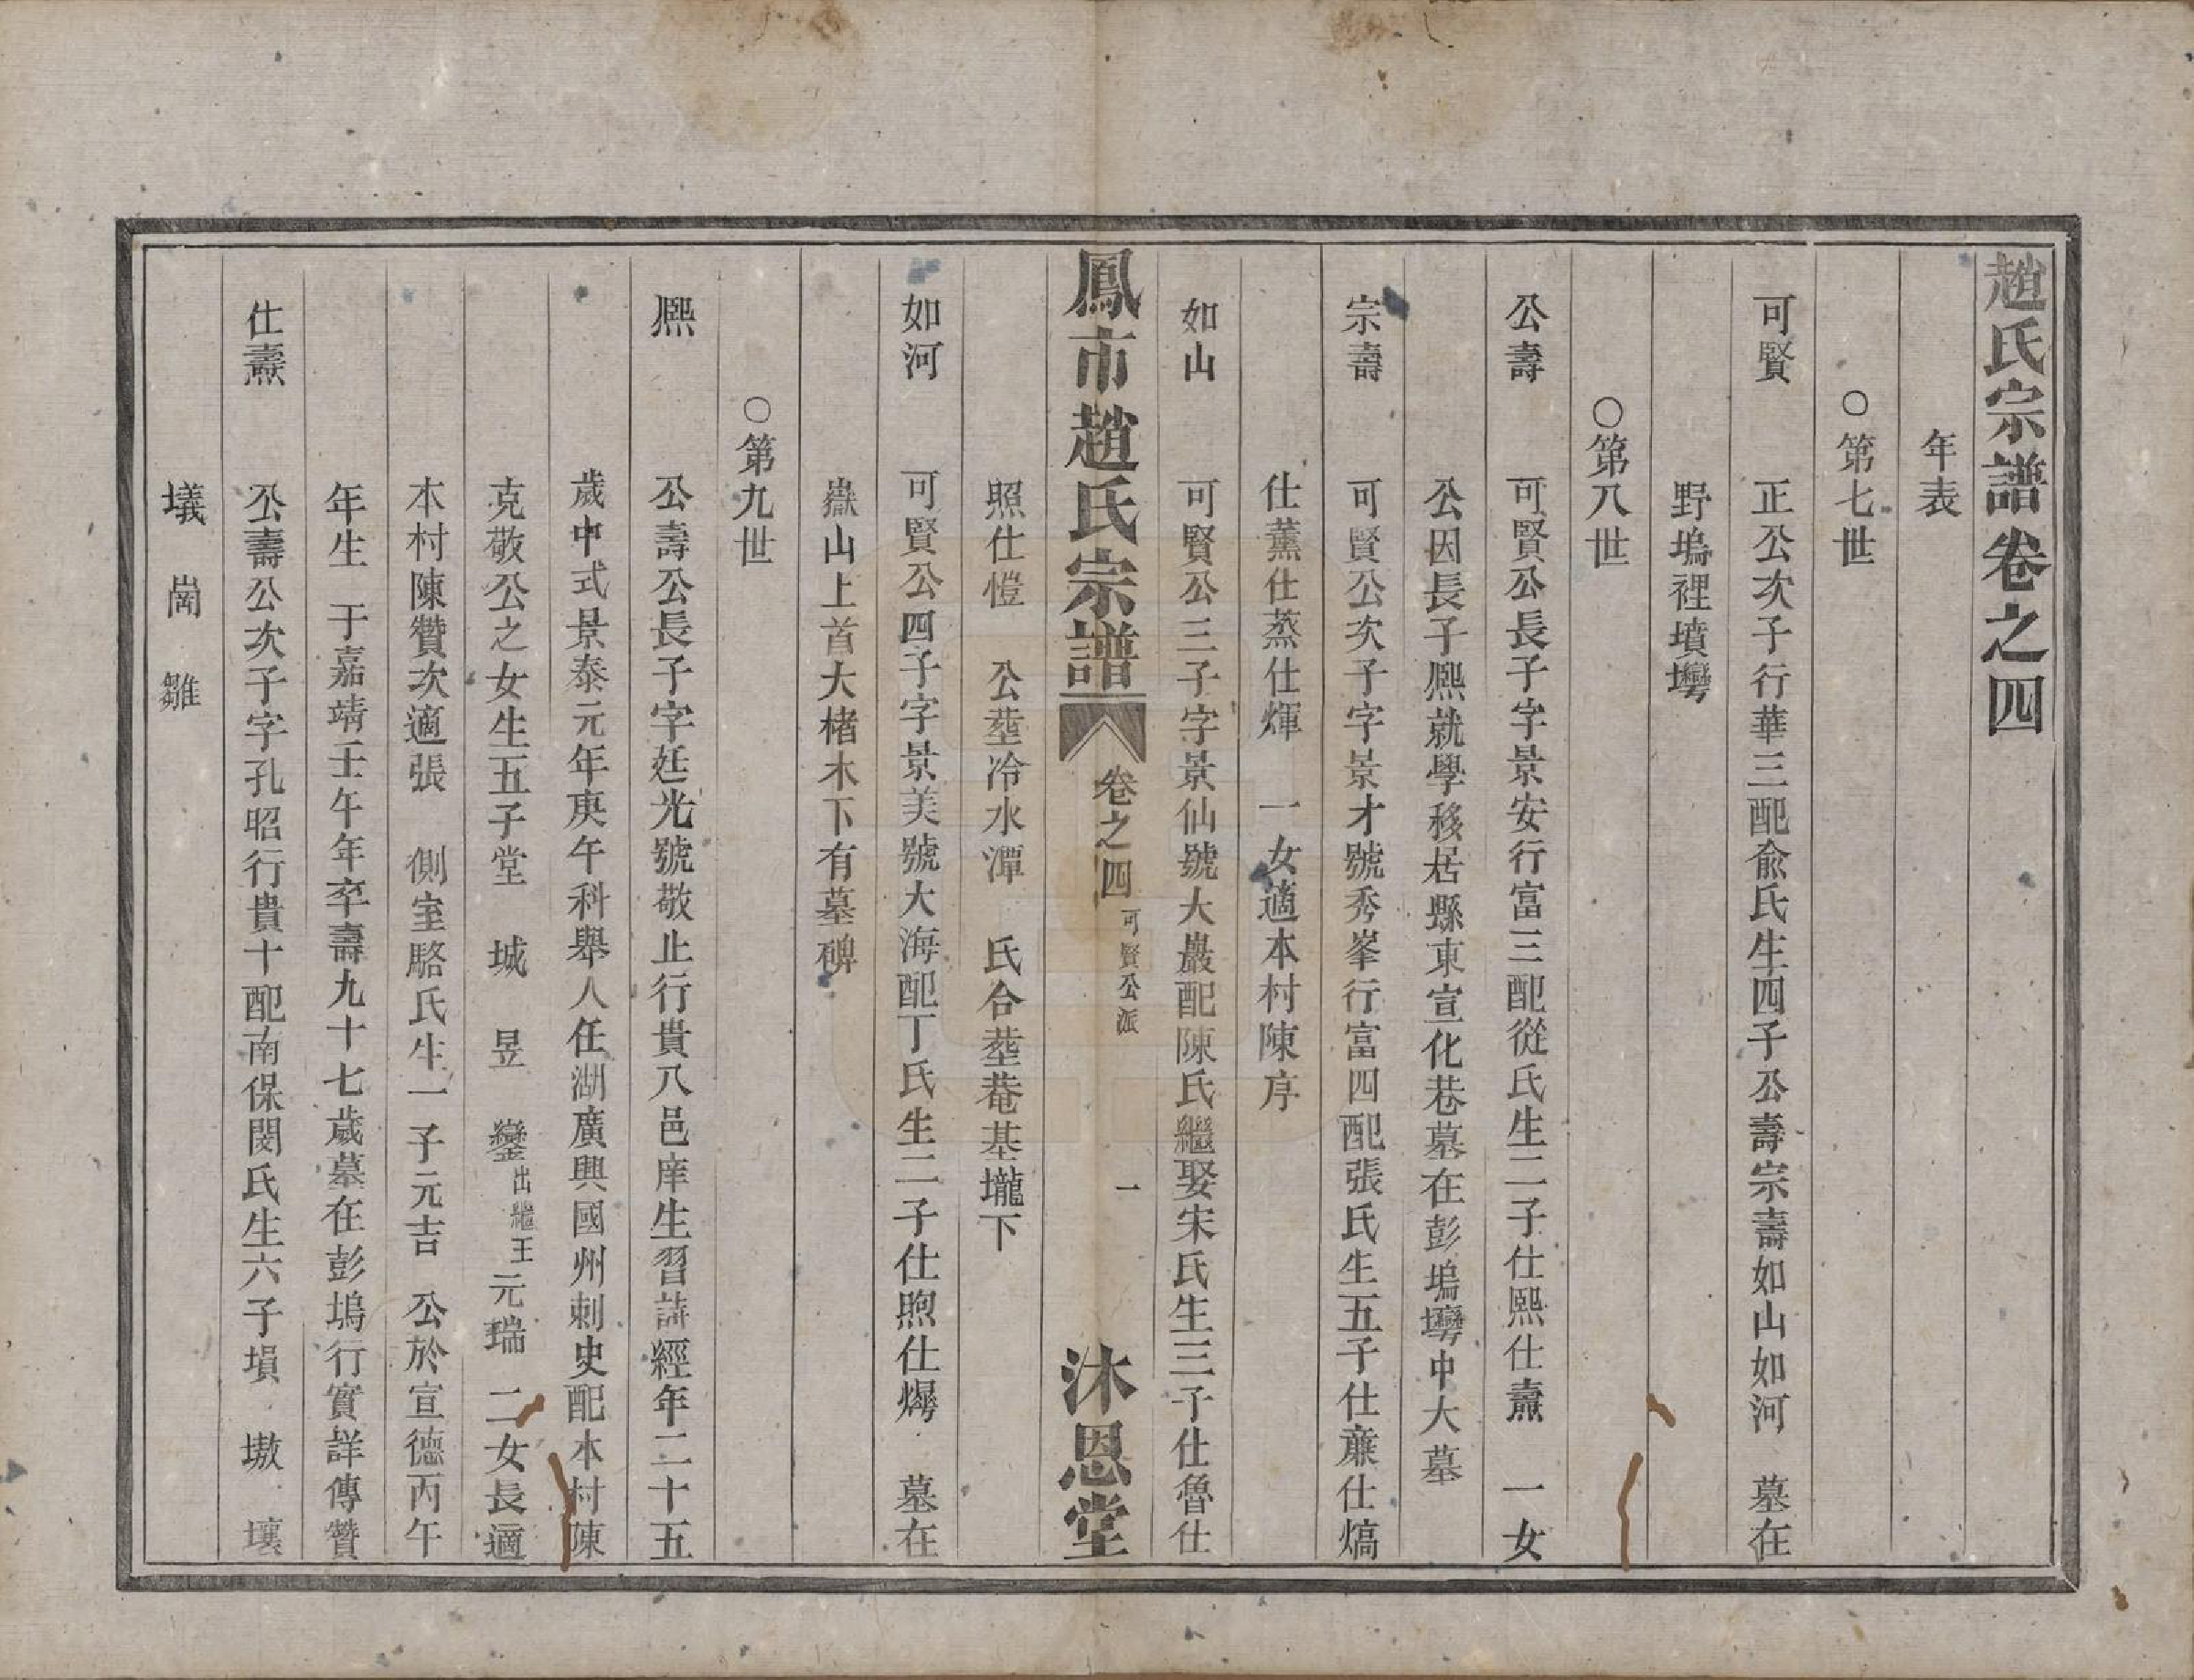 趙氏宗譜卷之四
年表
○第七世
可賢 正公次子行華三配俞氏生四子公壽宗壽如山如河 墓在
野塢裡墳壪
○第八世
公壽 可賢公長子字景安行富三配從氏生二子仕熙仕燾 一女
公因長子熈就學移居縣東宣化巷墓在彭塢壪中大墓
宗壽 可賢公次子字景才號秀峯行富四配張氏生五子仕㷰仕熇
仕薰仕蒸仕煇 一女適本村陳序
如山 可賢公三子字景仙號大巖配陳氏繼娶宋氏生三子仕魯仕
鳳市趙氏宗譜 卷之四 可賢公派 一 沐恩堂
照仕愷 公塟冷水潭 氏合塟菴基壠下
如河 可賢公四子字景美號大海配丁氏生二子仕煦仕燖 墓在
嶽山上首大楮木下有墓碑
○第九世
熈 公壽公長子字廷光號敬止行貴八邑庠生習詩經年二十五
歲中式景泰元年庚午科舉人任湖廣興國州刺史配本村陳
克敬公之女生五子堂 城 昱 鑾出繼王元瑞 二女長適
本村陳贊次適張 側室駱氏生一子元吉 公於宣德丙午
年生 于嘉靖壬午年卒壽九十七歲墓在彭塢行實詳傳贊
仕燾 公壽公次子字孔昭行貴十配南保閔氏生六子塤 墩 壤
㙯 崗 雛